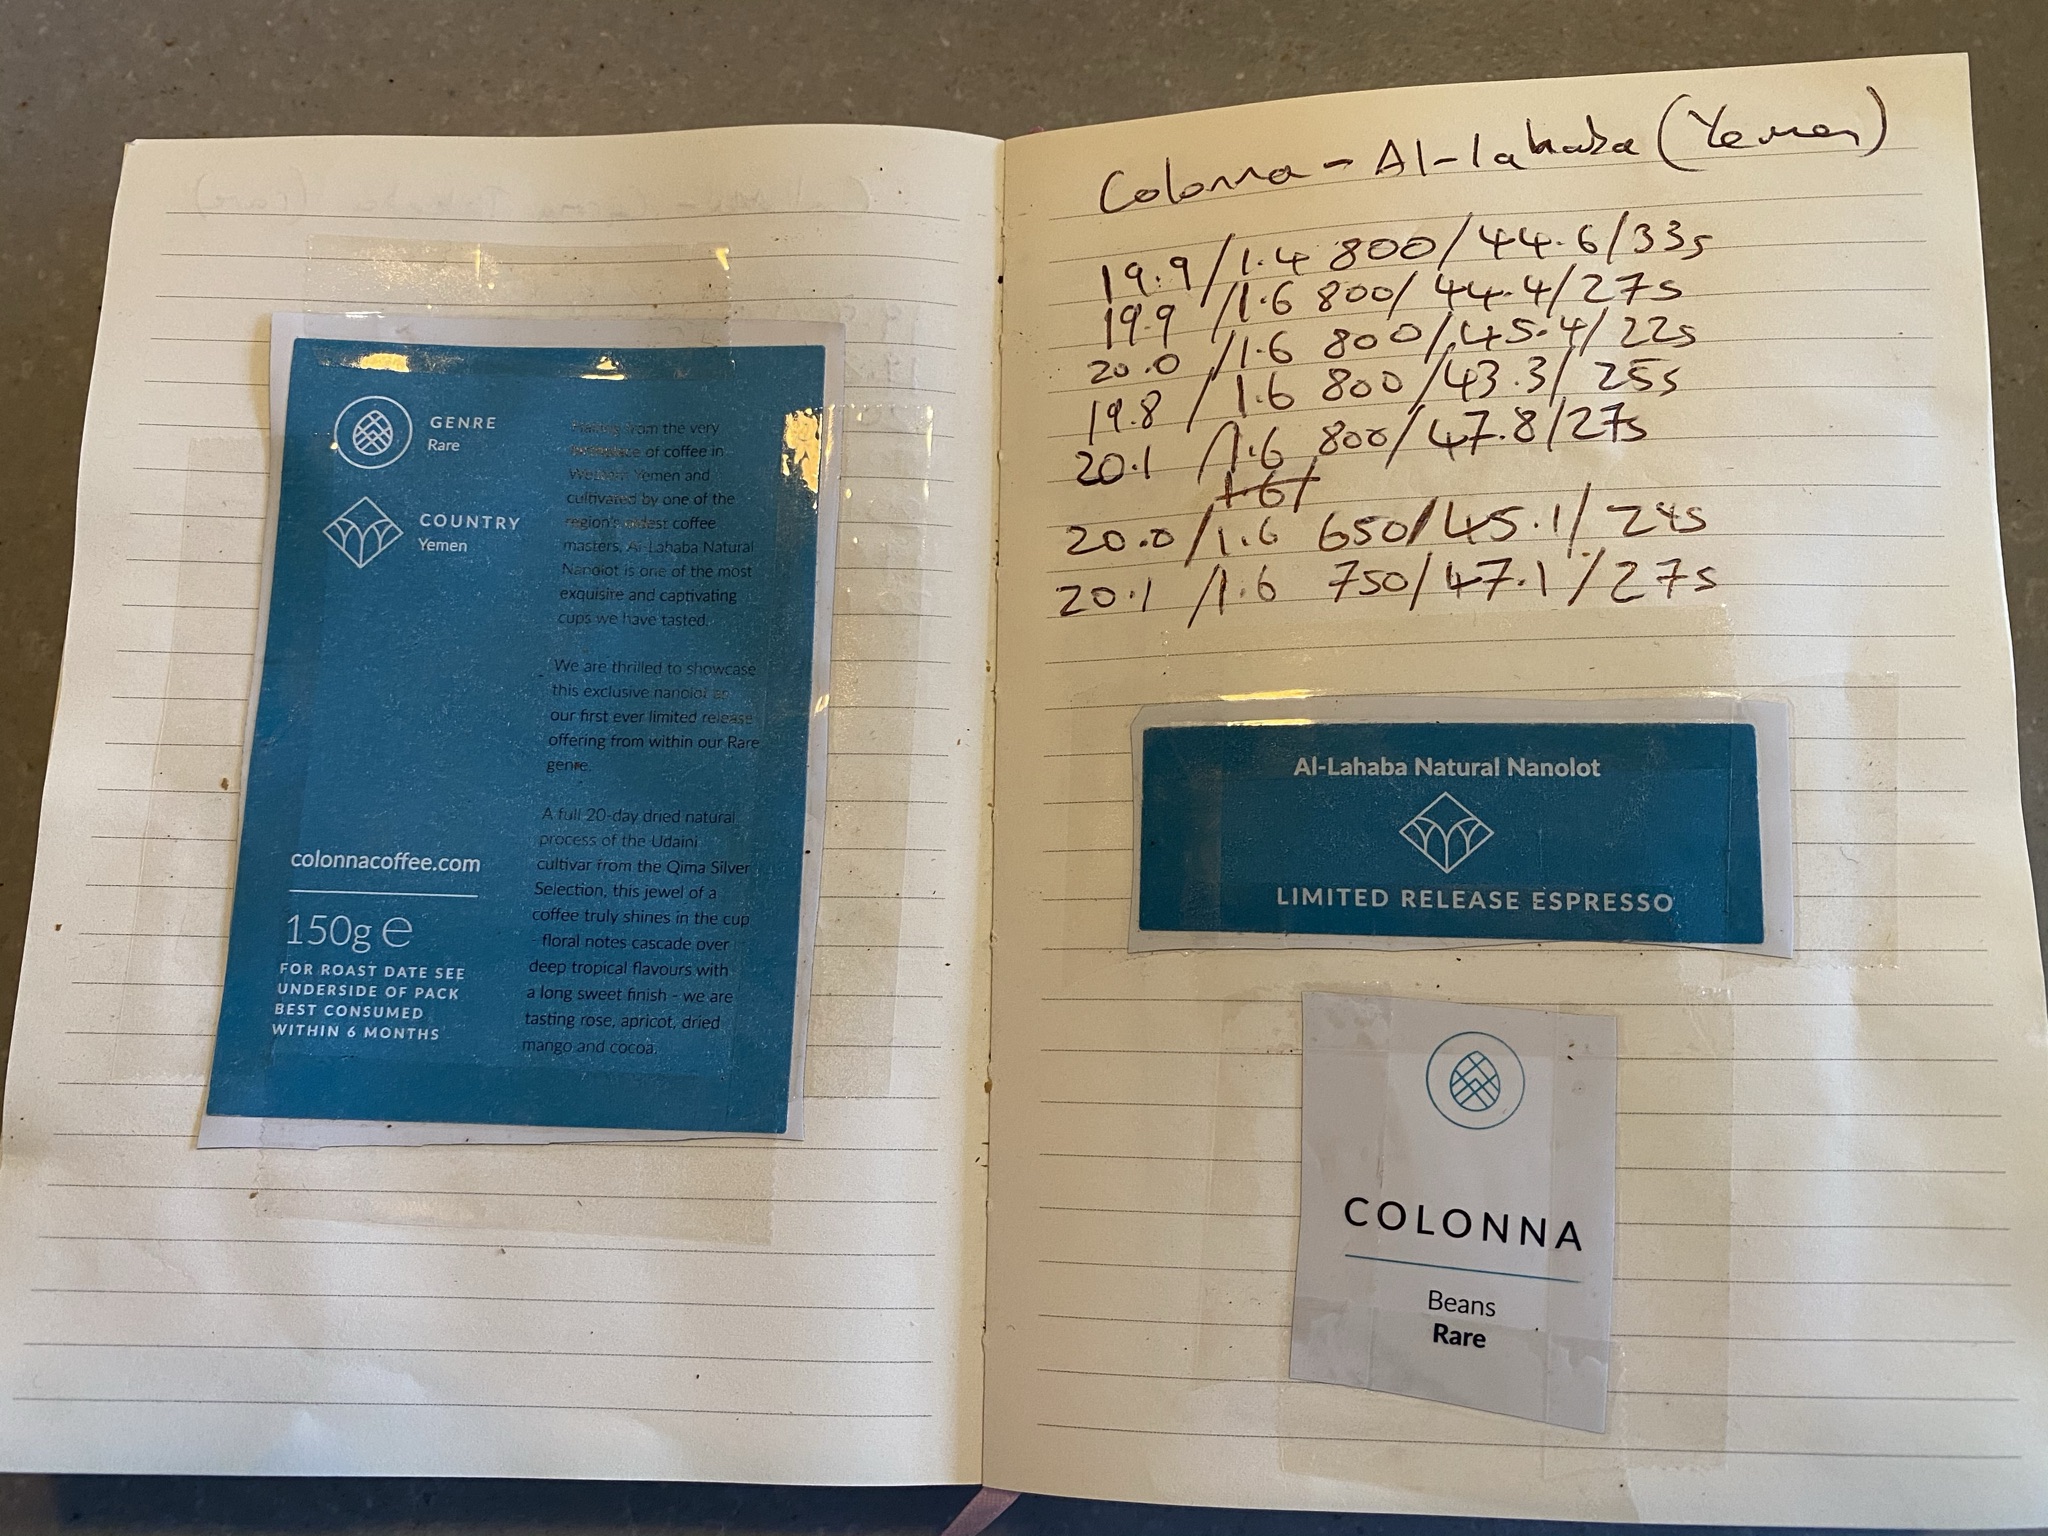 GENRE
Rare
COUNTRY
Yemen
colonnacoffee.com
150g ℮
FOR ROAST DATE SEE
UNDERSIDE OF PACK
BEST CONSUMED
WITHIN 6 MONTHS
from the very
of coffee in
Yemen and
cultivated by one of the
region's oldest coffee
masters, Al-Lahaba Natural
Nanolot is one of the most
exquisire and captivating
cups we have tasted.
We are thrilled to showcase
this exclusive nanolot as
our first ever limited release
offering from within our Rare
genre.
A full 20-day dried natural
process of the Udaini
cultivar from the Qima Silver
Selection, this jewel of a
coffee truly shines in the cup
- floral notes cascade over
deep tropical flavours with
a long sweet finish - we are
tasting rose, apricot, dried
mango and cocoa.
Colonna - Al-lahaba (Yemen)
19.9/1.4 800/44.6/33s
19.9/1.6 800/44.4/27s
20.0/1.6 800/45.4/22s
19.8/1.6 800/43.3/25s
20.1/1.6 800/47.8/27s
1.6/
20.0/1.6 650/45.1/24s
20.1/1.6 750/47.1/27s
Al-Lahaba Natural Nanolot
LIMITED RELEASE ESPRESSO
COLONNA
Beans
Rare